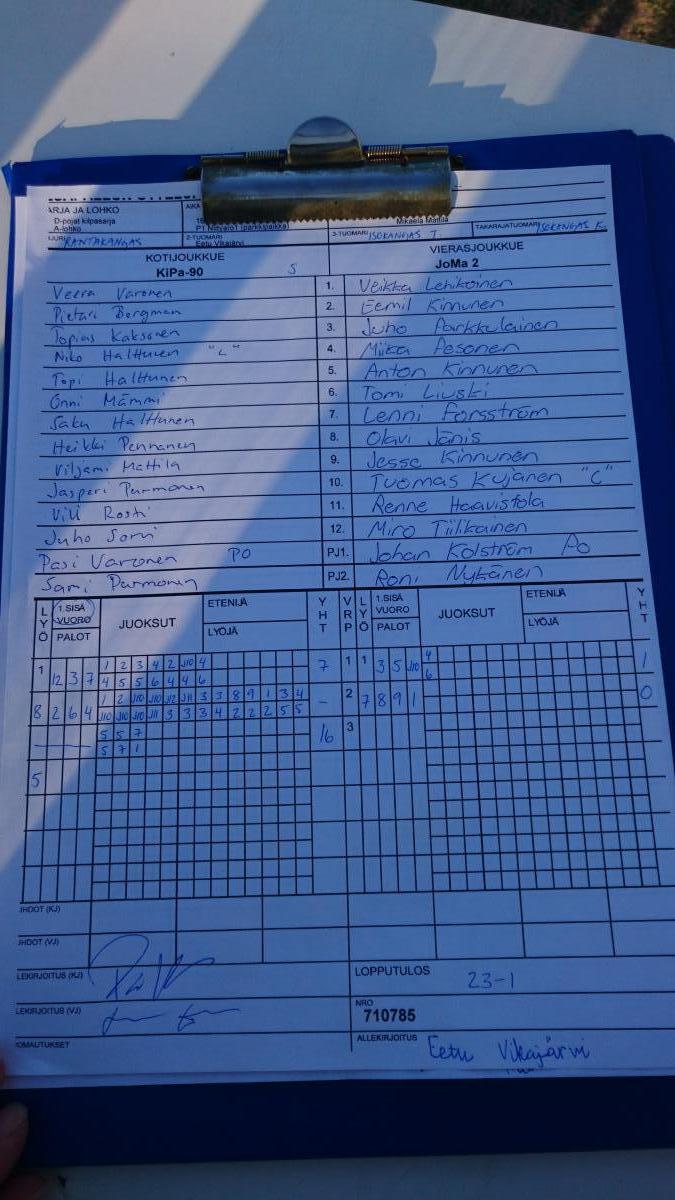 ARJA JA LOHKO AIKA
D-pojat kilpasarja Mikaela Mattila
A-lohko P1 Niittyaro1 (parkkipaikka)
RANTAKANGAS 2-TUOMARI Eetu Vikajärvi 3-TUOMARI ISOKANGAS T. TAKARAJATUOMARI ISOKANGAS E.
KOTIJOUKKUE VIERASJOUKKUE
KiPa-90 S JoMa 2
Veera Varonen 1. Veikka Lehikoinen
Pietari Borgman 2. Eemil Kinnunen
Topias Kaksonen 3. Juho Parkkulainen
Niko Halttunen "C" 4. Miika Pesonen
Topi Halttunen 5. Anton Kinnunen
Onni Mämmi 6. Tomi Liuski
Saku Halttunen 7. Lenni Forsström
Heikki Pennanen 8. Olavi Jänis
Viljami Mattila 9. Jesse Kinnunen
Jasperi Purmonen 10. Tuomas Kujanen "C"
Vili Rosti 11. Renne Haavistola
Juho Sorvi 12. Miro Tiilikainen
Pasi Varonen PO PJ1. Johan Kolström Po
Sami Purmonen PJ2. Roni Nykänen
LYÖ 1.SISÄ VUORO PALOT JUOKSUT ETENIJÄ LYÖJÄ YHT VRP LYÖ 1.SISÄ VUORO PALOT JUOKSUT ETENIJÄ LYÖJÄ YHT
1 1 2 3 4 2 J10 4 4
12 3 7 4 5 5 6 4 4 6 7 1 1 3 5 J10 6 1
1 2 J10 J10 J12 J11 3 3 8 9 1 3 4
8 2 6 4 J10 J10 J10 J11 3 3 3 4 2 2 2 5 5 – 2 7 8 9 1 0
5 5 7
5 7 1 16 3
5
JHDOT (KJ)
JHDOT (VJ)
LEKIRJOITUS (KJ) LOPPUTULOS 23-1
LEKIRJOITUS (VJ) NRO 710785
OMAUTUKSET ALLEKIRJOITUS Eetu Vikajärvi